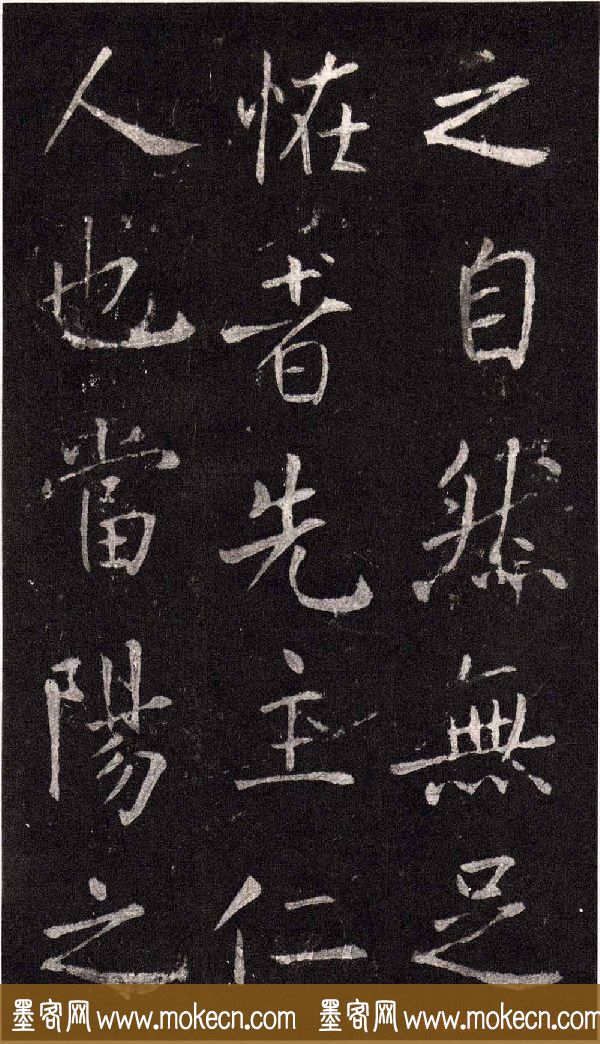 之自然無足
恠者先主仁
人也當陽之
墨客网 www.mokecn.com 墨客网 www.mokecn.com